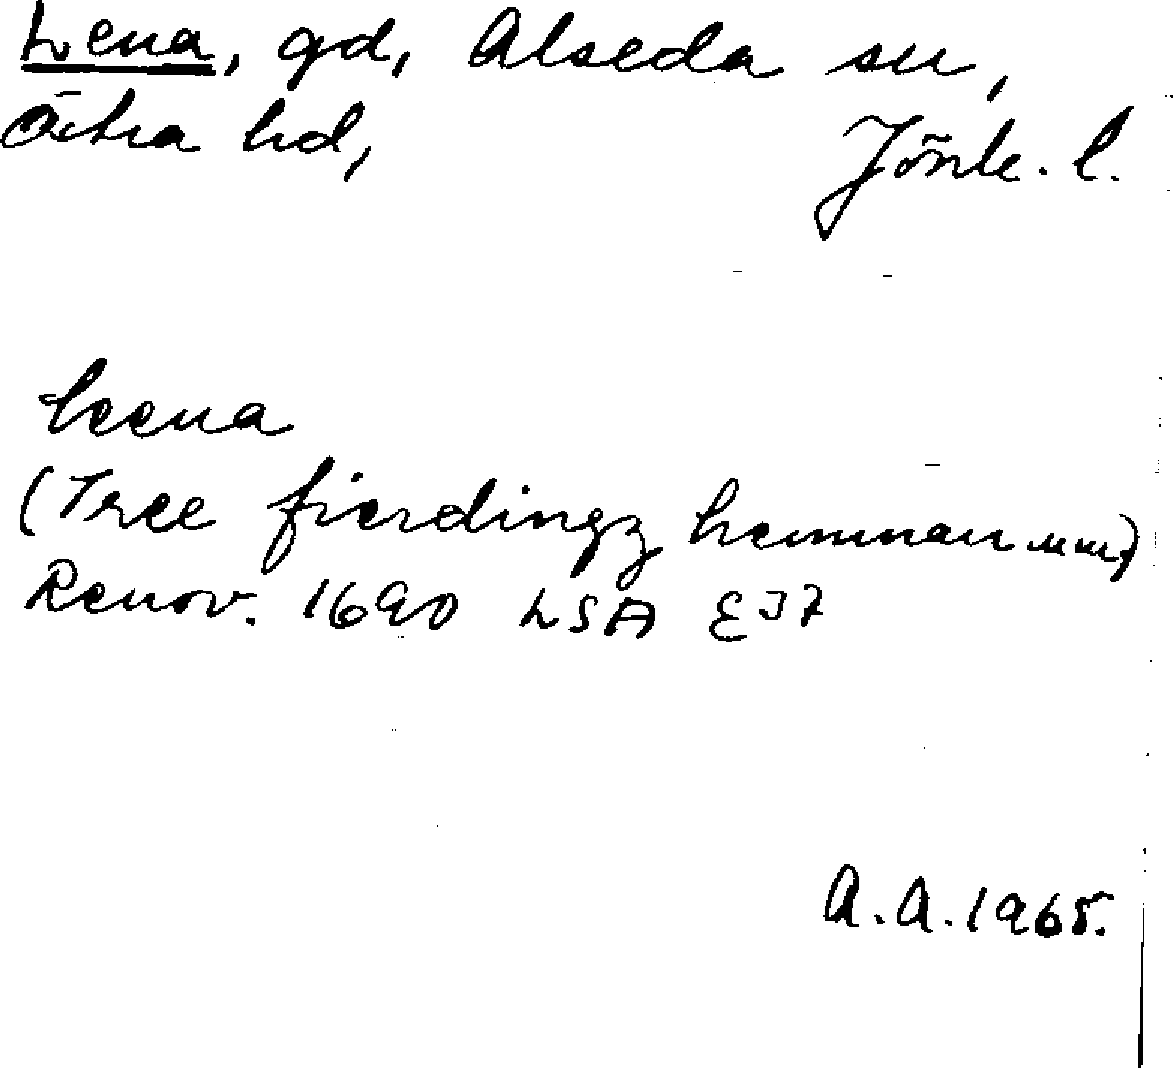 Lena, gd, Alseda sn,
Östra hd, Jönk. l.
Leena
(Tree fierdingz hemman mm)
Renov. 1690 LSA E37
A.A. 1965.